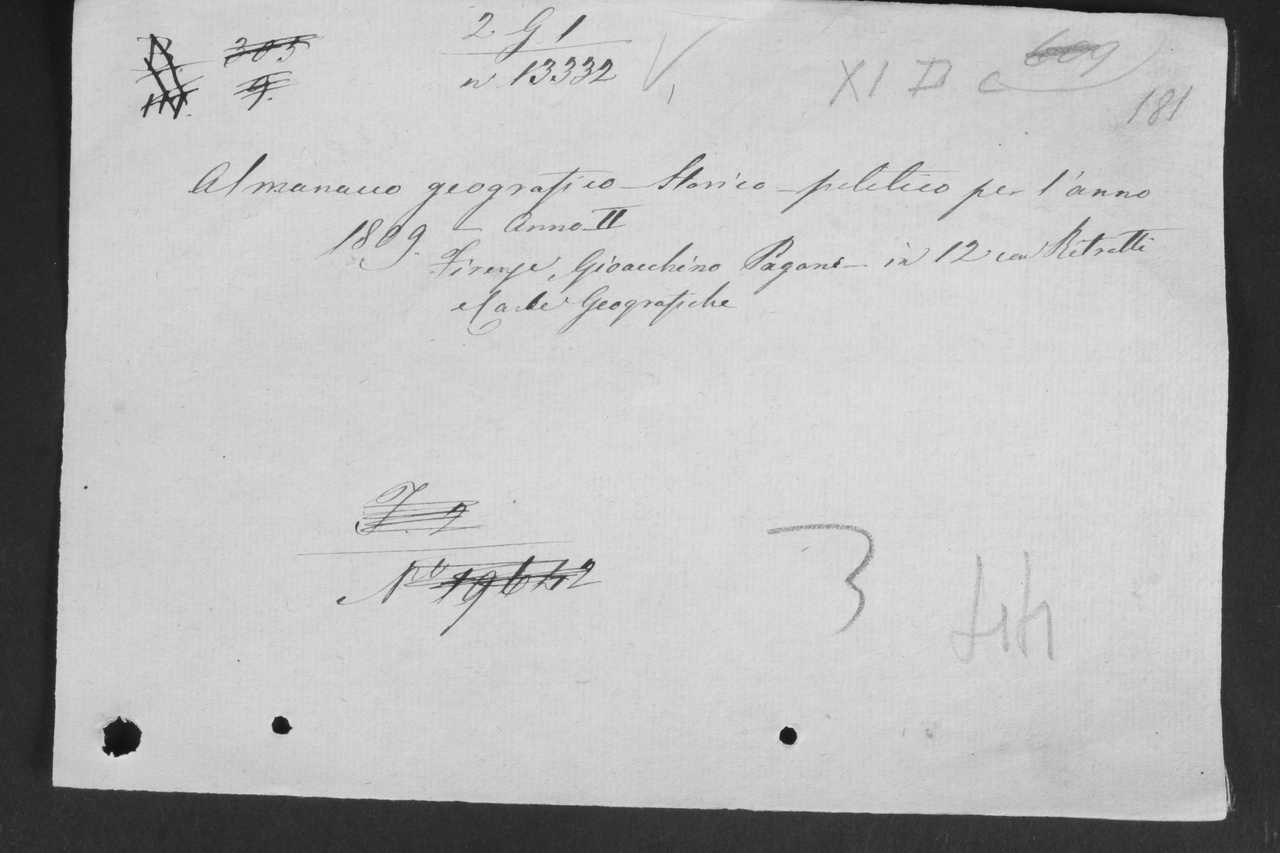 2 G 1
n 13332
305
9.
XI D c 609
181
Almanacco geografico - Storico - politico per l'anno
1809. - Anno II
Firenze, Gioacchino Pagani - in 12 con Ritratti
e Carte Geografiche
N° 19642
3